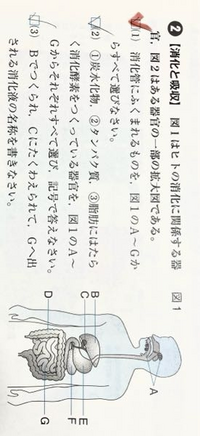 ❷【消化と吸収】 図1はヒトの消化に関係する器
官，図2はある器官の一部の拡大図である。
(1) 消化管にふくまれるものを，図1のA〜Gか
らすべて選びなさい。
(2) ①炭水化物，②タンパク質，③脂肪にはたら
く消化酵素をつくっている器官を，図1のA〜
Gからそれぞれすべて選び，記号で答えなさい。
(3) Bでつくられ，Cにたくわえられて，Gへ出
される消化液の名称を書きなさい。
図1
A
B
C
D
E
F
G